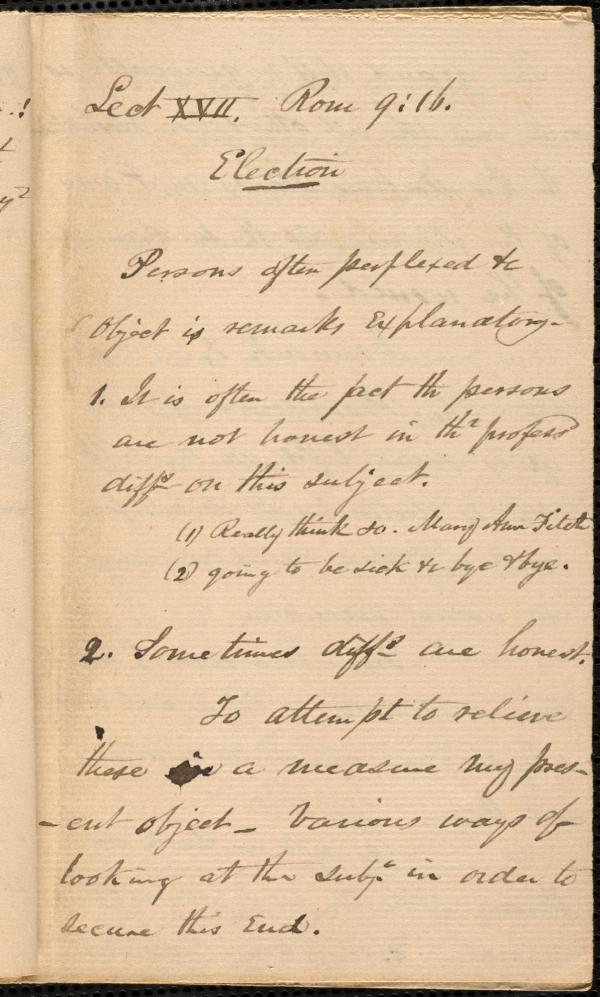 Lect XVII. Rom 9:16.
Election
Persons often perplexed &c
Object is remarks Explanatory-
1. It is often the fact th persons
are not honest in thr profess
diffs on this subject.
(1) Really think so. Mary Ann
(2) going to be sick &c bye & bye.
2. Sometimes diffs are honest.
To attempt to relieve
these in a measure my pres-
-ent object - Various ways of
looking at the subjt in order to
secure this End.